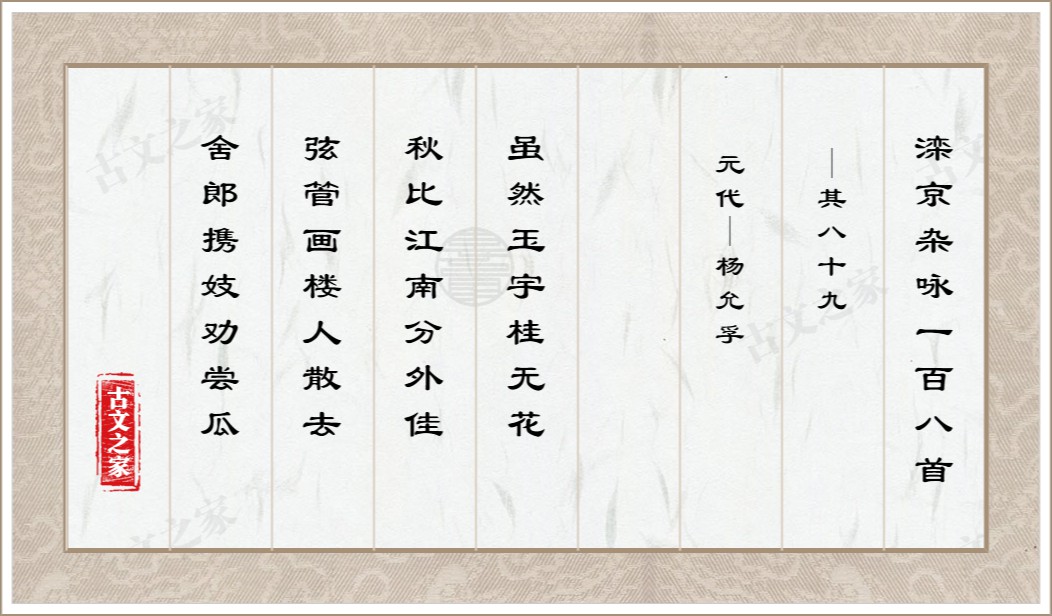 滦京杂咏一百八首
—其八十九
元代—杨允孚
虽然玉宇桂无花
秋比江南分外佳
弦管画楼人散去
舍郎携妓劝尝瓜
古文之家
古文之家
古文之家
古文之家